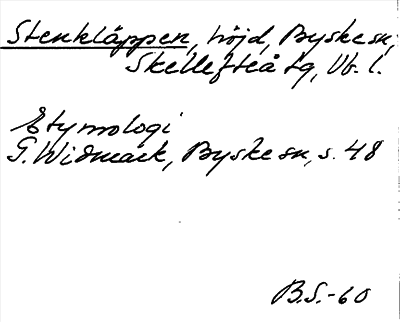 Stenkläppen, höjd, Byske sn,
Skellefteå tg, Vb. l.
Etymologi
G. Widmark, Byske sn, s. 48
B.S.-60